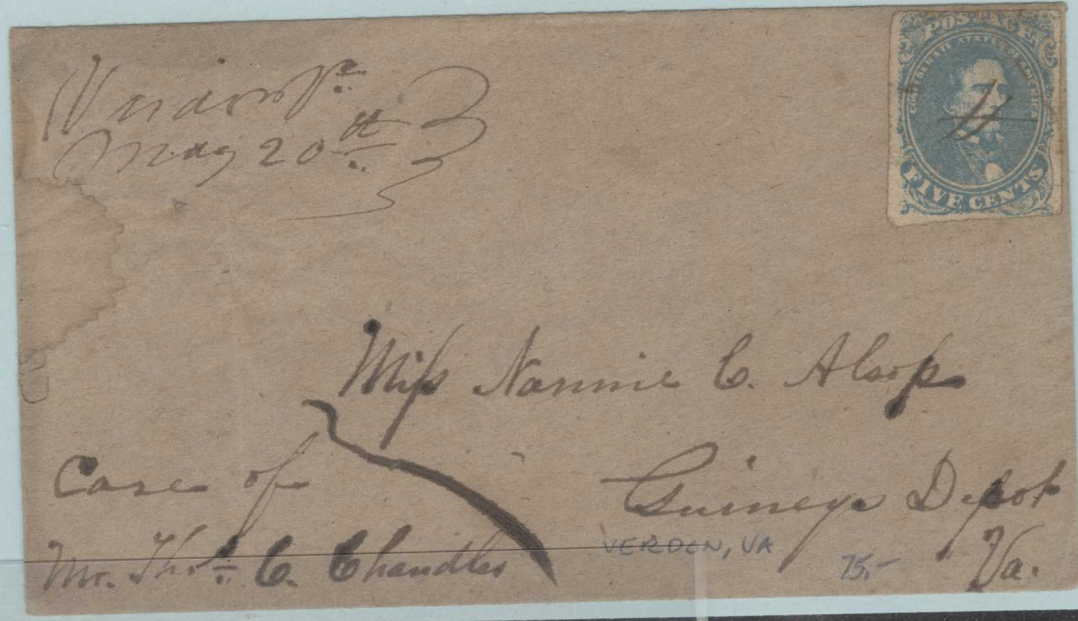 Verdon Va
May 20th
POSTAGE
CONFEDERATE STATES OF AMERICA
FIVE CENTS
Miss Nannie C. Alsop
Guineys Depot
Va.
Care of
Mr. Thos. C. Chandler
VERDON, VA
75.-